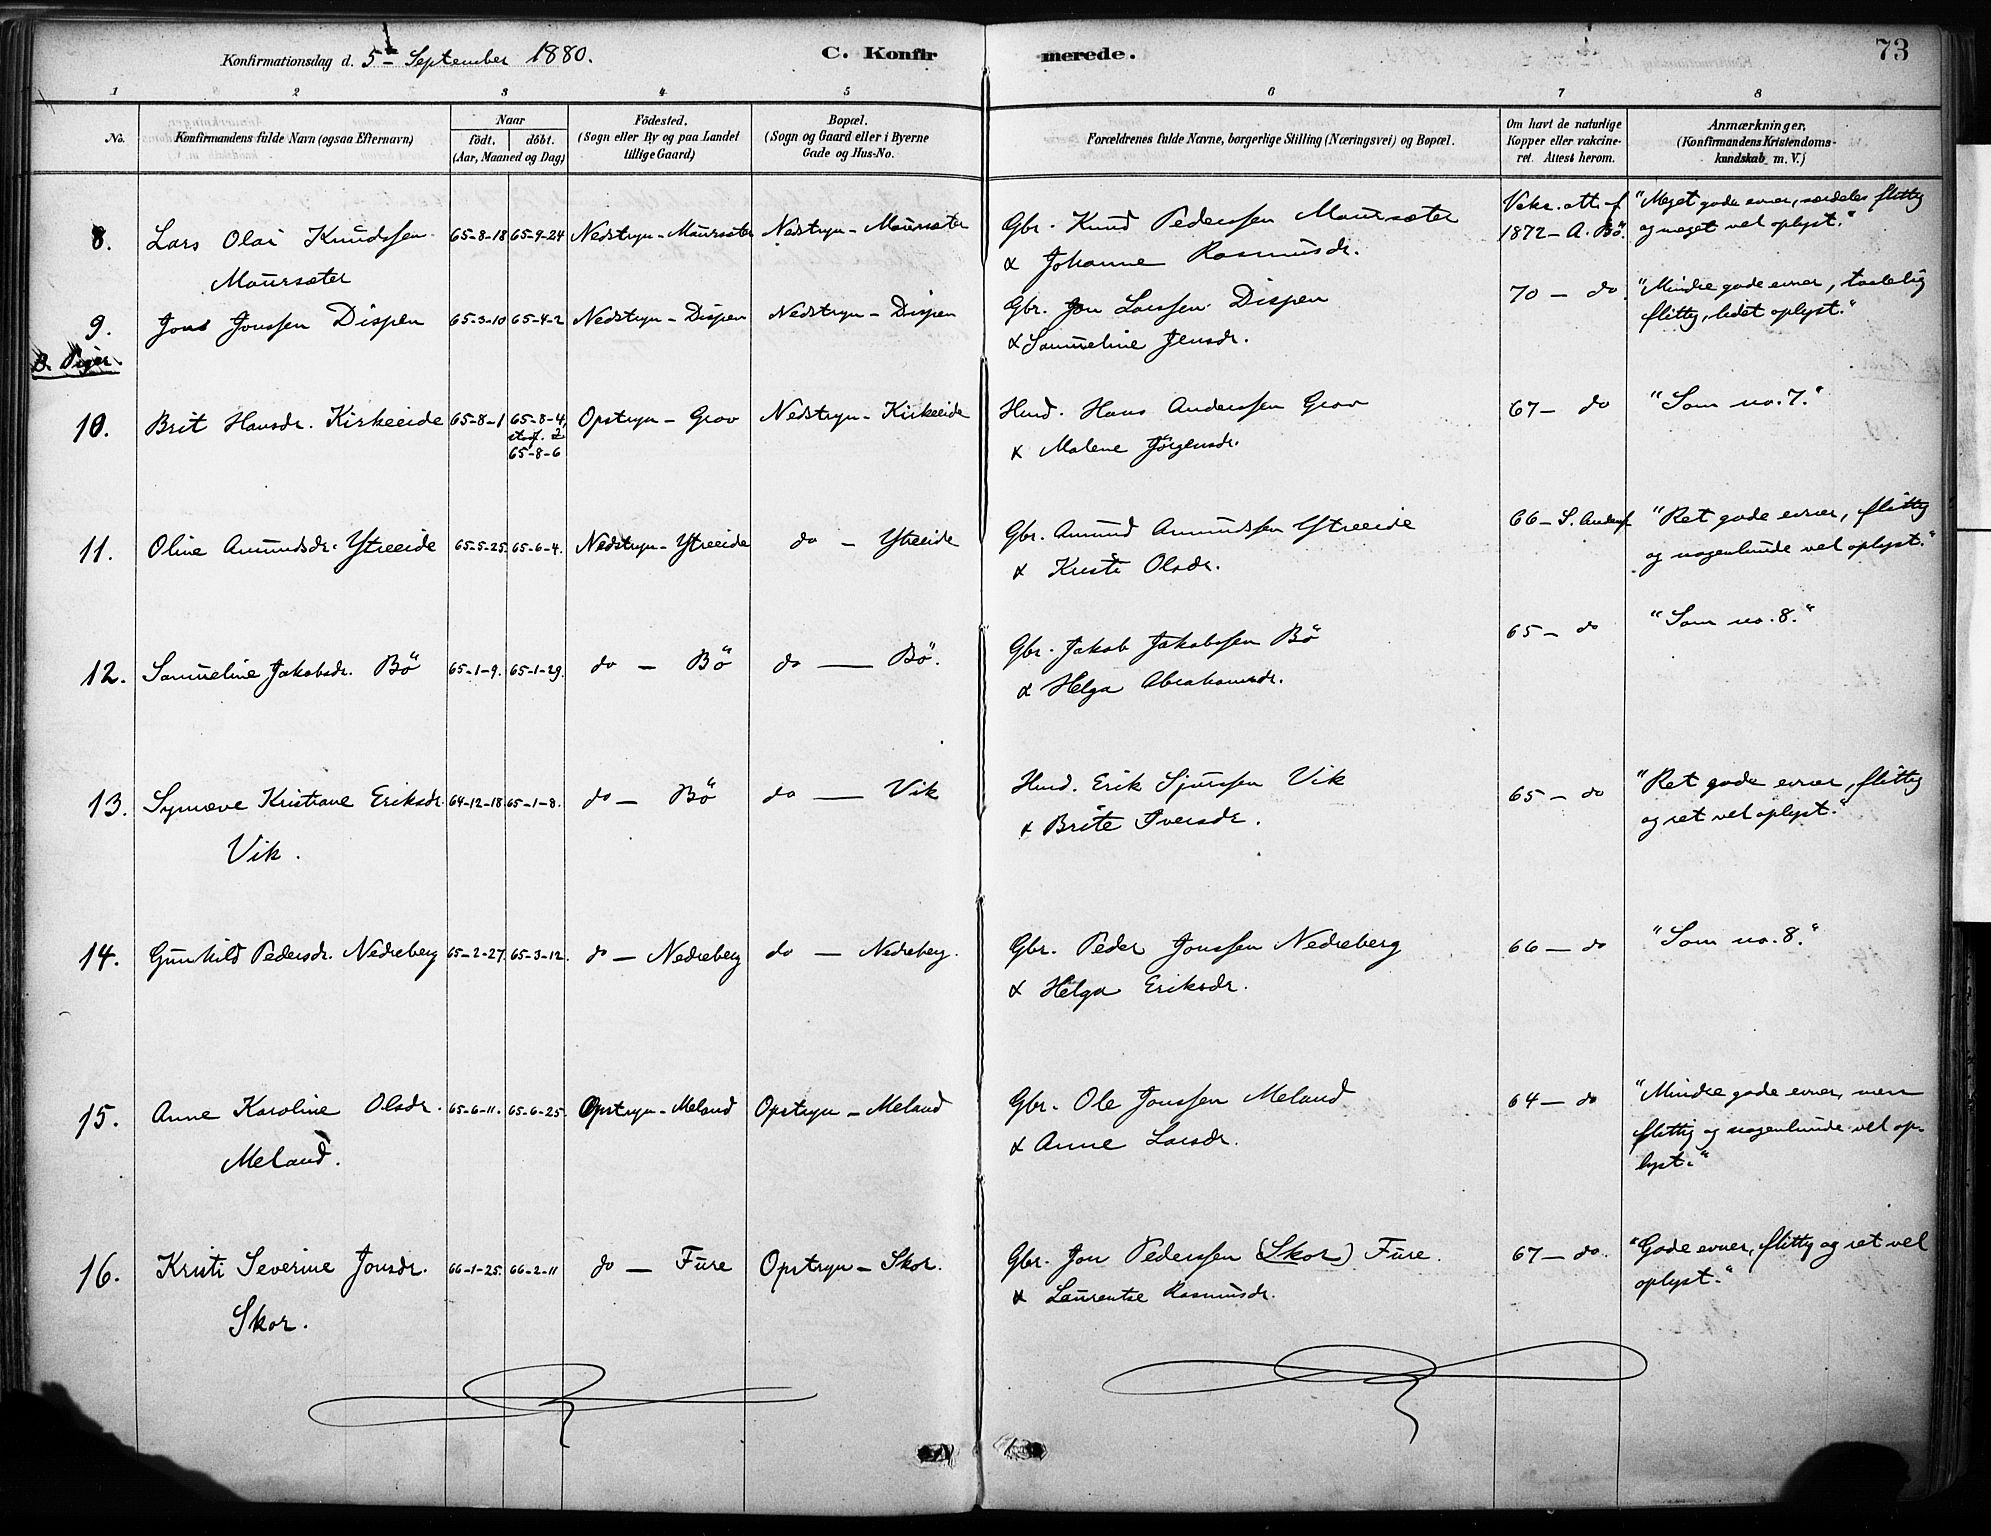 Konfirmationsdag d. 5te September 1880.
C. Konfirmerede.
73
1 2 3 4 5 6 7 8
No.
Konfirmandens fulde Navn (ogsaa Efternavn)
Naar
födt. döbt.
(Aar, Maaned og Dag)
Födested.
(Sogn eller By og paa Landet
tillige Gaard)
Bopæl.
(Sogn og Gaard eller i Byerne
Gade og Hus-No.
Forældrenes fulde Navne, borgerlige Stilling (Næringsvei) og Bopæl.
Om havt de naturlige
Kopper eller vakcine-
ret. Attest herom.
Anmærkninger,
(Konfirmandens Kristendoms-
kundskab m. V.)
8. Lars Olai Knudssen 65-8-18 65-9-24 Nedstryn - Maursæter Nedstryn - Maursæter Gbr. Knud Pederssen Maursæter Vakc. att. f. "Meget gode evner, særdeles flittig
Maursæter & Johanne Rasmusdr. 1872 - A. Bö. og meget vel oplyst."
9. Jons Jonssen Dispen 65-3-10 65-4-2 Nedstryn - Dispen Nedstryn - Dispen Gbr. Jon Larssen Dispen 70 - do. "Mindre gode evner, taalelig
& Samueline Jensdr. flittig, lidet oplyst."
B. Piger.
10. Brit Hansdr. Kirkeeide 65-8-1 65-8-4, Opstryn - Grov Nedstryn - Kirkeeide Husd. Hans Anderssen Grov 67 - do "Som no. 7."
65-8-6 & Malene Jörgensdr.
11. Oline Amundsdr. Ytreeide 65-5-25 65-6-4. Nedstryn - Ytreeide do - Ytreeide Gbr. Amund Amundssen Ytreeide 66 - S. Anderss. "Ret gode evner, flittig
& Kristi Olsdr. og nogenlunde vel oplyst."
12. Samueline Jakobsdr. Bö 65-1-9. 65-1-29. do - Bö do - Bö. Gbr. Jakob Jakobssen Bö 65 - do "Som no. 8."
& Helga Abrahamsdr.
13. Synneve Kristiane Eriksdr. 64-12-18 65-1-8. do - Bö do - Vik Husd. Erik Sjurssen Vik 65 - do "Ret gode evner, flittig
Vik. & Brite Iversdr. og ret vel oplyst."
14. Gunhild Pedersdr. Nedreberg 65-2-27 65-3-12. do - Nedreberg do - Nedreberg. Gbr. Peder Jonssen Nedreberg 66 - do "Som no. 8."
& Helga Eriksdr.
15. Anne Karoline Olsdr. 65-6-11. 65-6-25. Opstryn - Meland Opstryn - Meland Gbr. Ole Jonssen Meland 64 - do "Mindre gode evner, men
Meland. & Anne Larsdr. flittig og nogenlunde vel op-
lyst."
16. Kristi Severine Jonsdr. 66-1-25. 66-2-11 do - Fure Opstryn - Skor. Gbr. Jon Pederssen (Skor) Fure. 67 - do. "Gode evner, flittig og ret vel
Skor. & Laurentse Rasmusdr. oplyst."